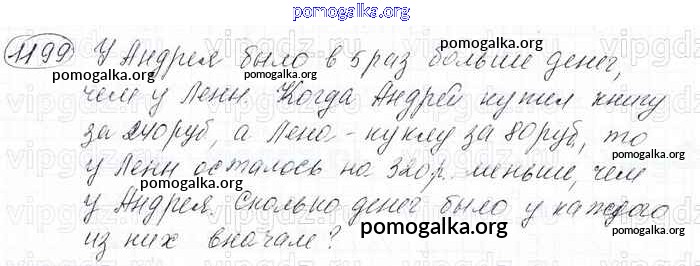 pomogalka.org
1199 У Андрея было в 5 раз больше денег,
pomogalka.org pomogalka.org pomogalka.org
чем у Лени. Когда Андрей купил книгу
за 240 руб, а Лена - куклу за 80 руб, то
pomogalka.org
у Лени осталось на 320 р. меньше, чем
pomogalka.org pomogalka.org
у Андрея. Сколько денег было у каждого
pomogalka.org
из них вначале?
pomogalka.org